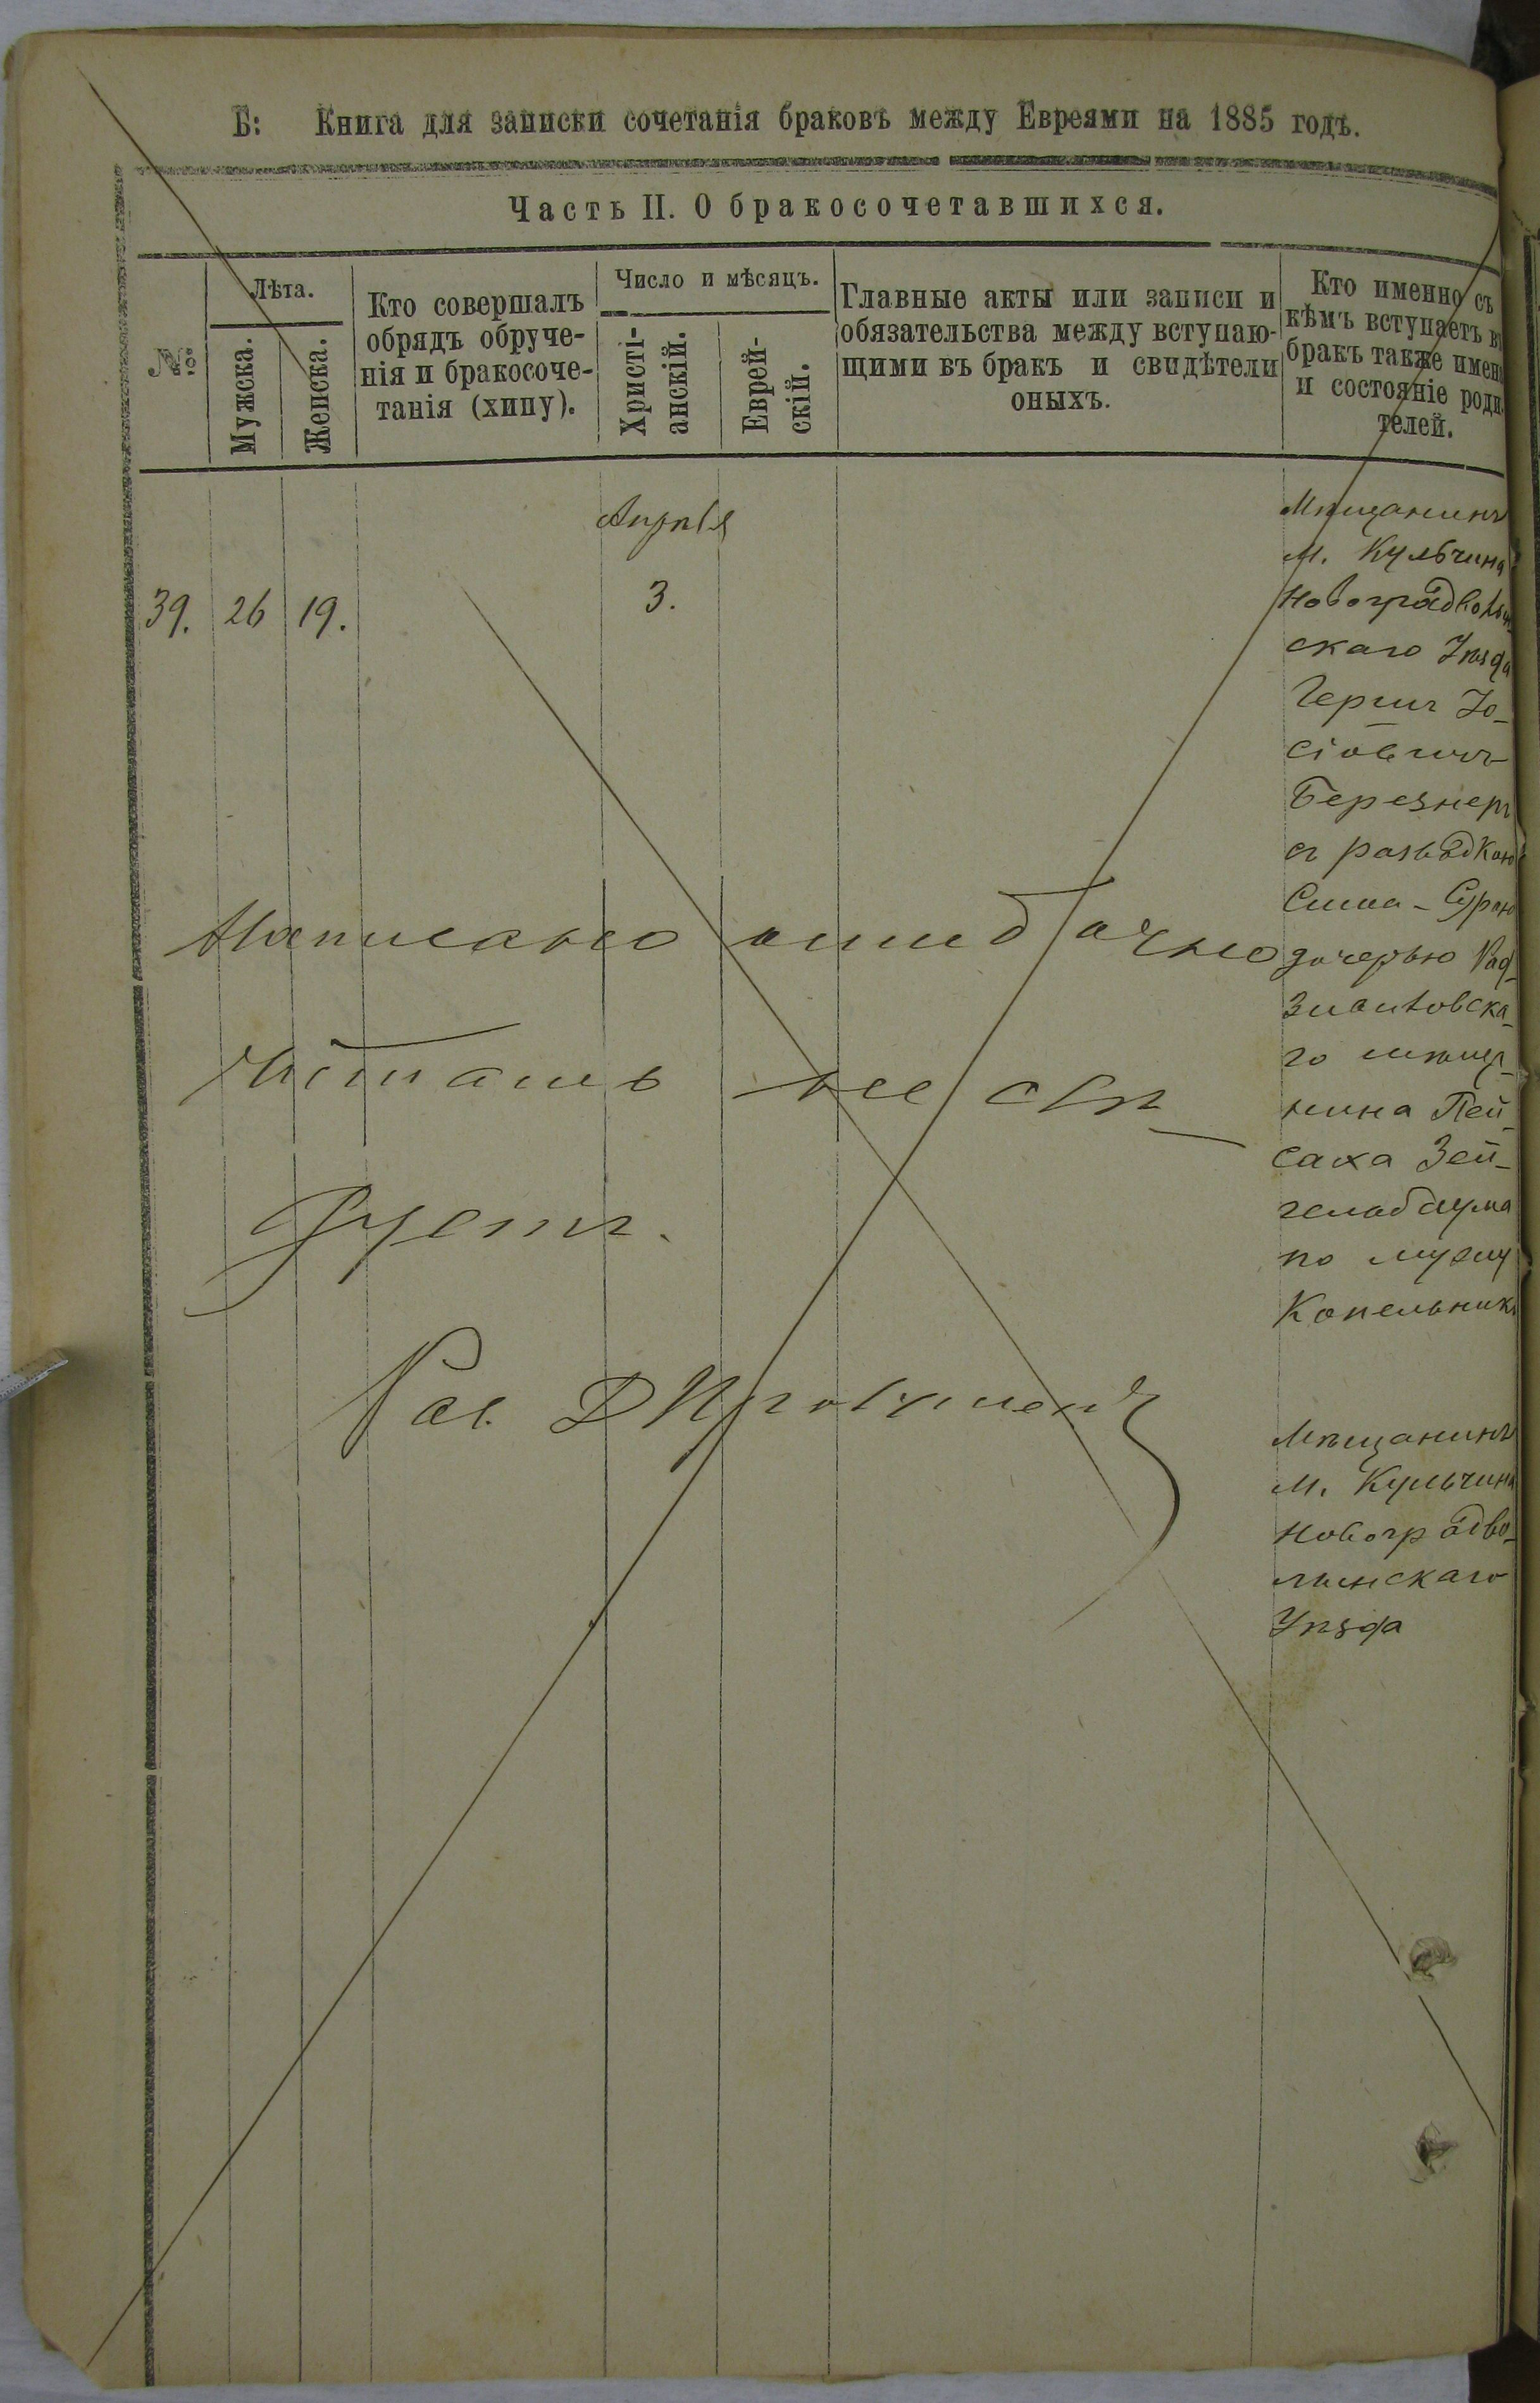 Б: Книга для записки сочетанія браковъ между Евреями на 1885 годъ.
Часть II. О бракосочетавшихся.
№
Лѣта.
Мужска.
Женска.
Кто совершалъ
обрядъ обруче-
нія и бракосоче-
танія (хипу).
Число и мѣсяцъ.
Христі-
анскій.
Еврей-
скій.
Главные акты или записи и
обязательства между вступаю-
щими въ бракъ и свидѣтели
оныхъ.
Кто именно съ
кѣмъ вступаетъ въ
бракъ также имена
и состояніе роди
телей.
Апрѣля
39. 26 19. 3.
Мѣщанинъ
м. Кульчина
Новоградволын
скаго Уѣзда
Гершъ Іо-
сіовичъ
Березнеръ
съ разводкою
Сима-Сурою
дочерью Рад-
зивиловска-
го мѣщ-
нина Пей-
саха Зей-
гелабаума
по мужу
Копельникъ
Написано ошибочно
Читать не слѣ-
дуетъ.
Рав. Д
Мѣщанинъ
м. Кульчина
Новоградво-
лынскаго
Уѣзда